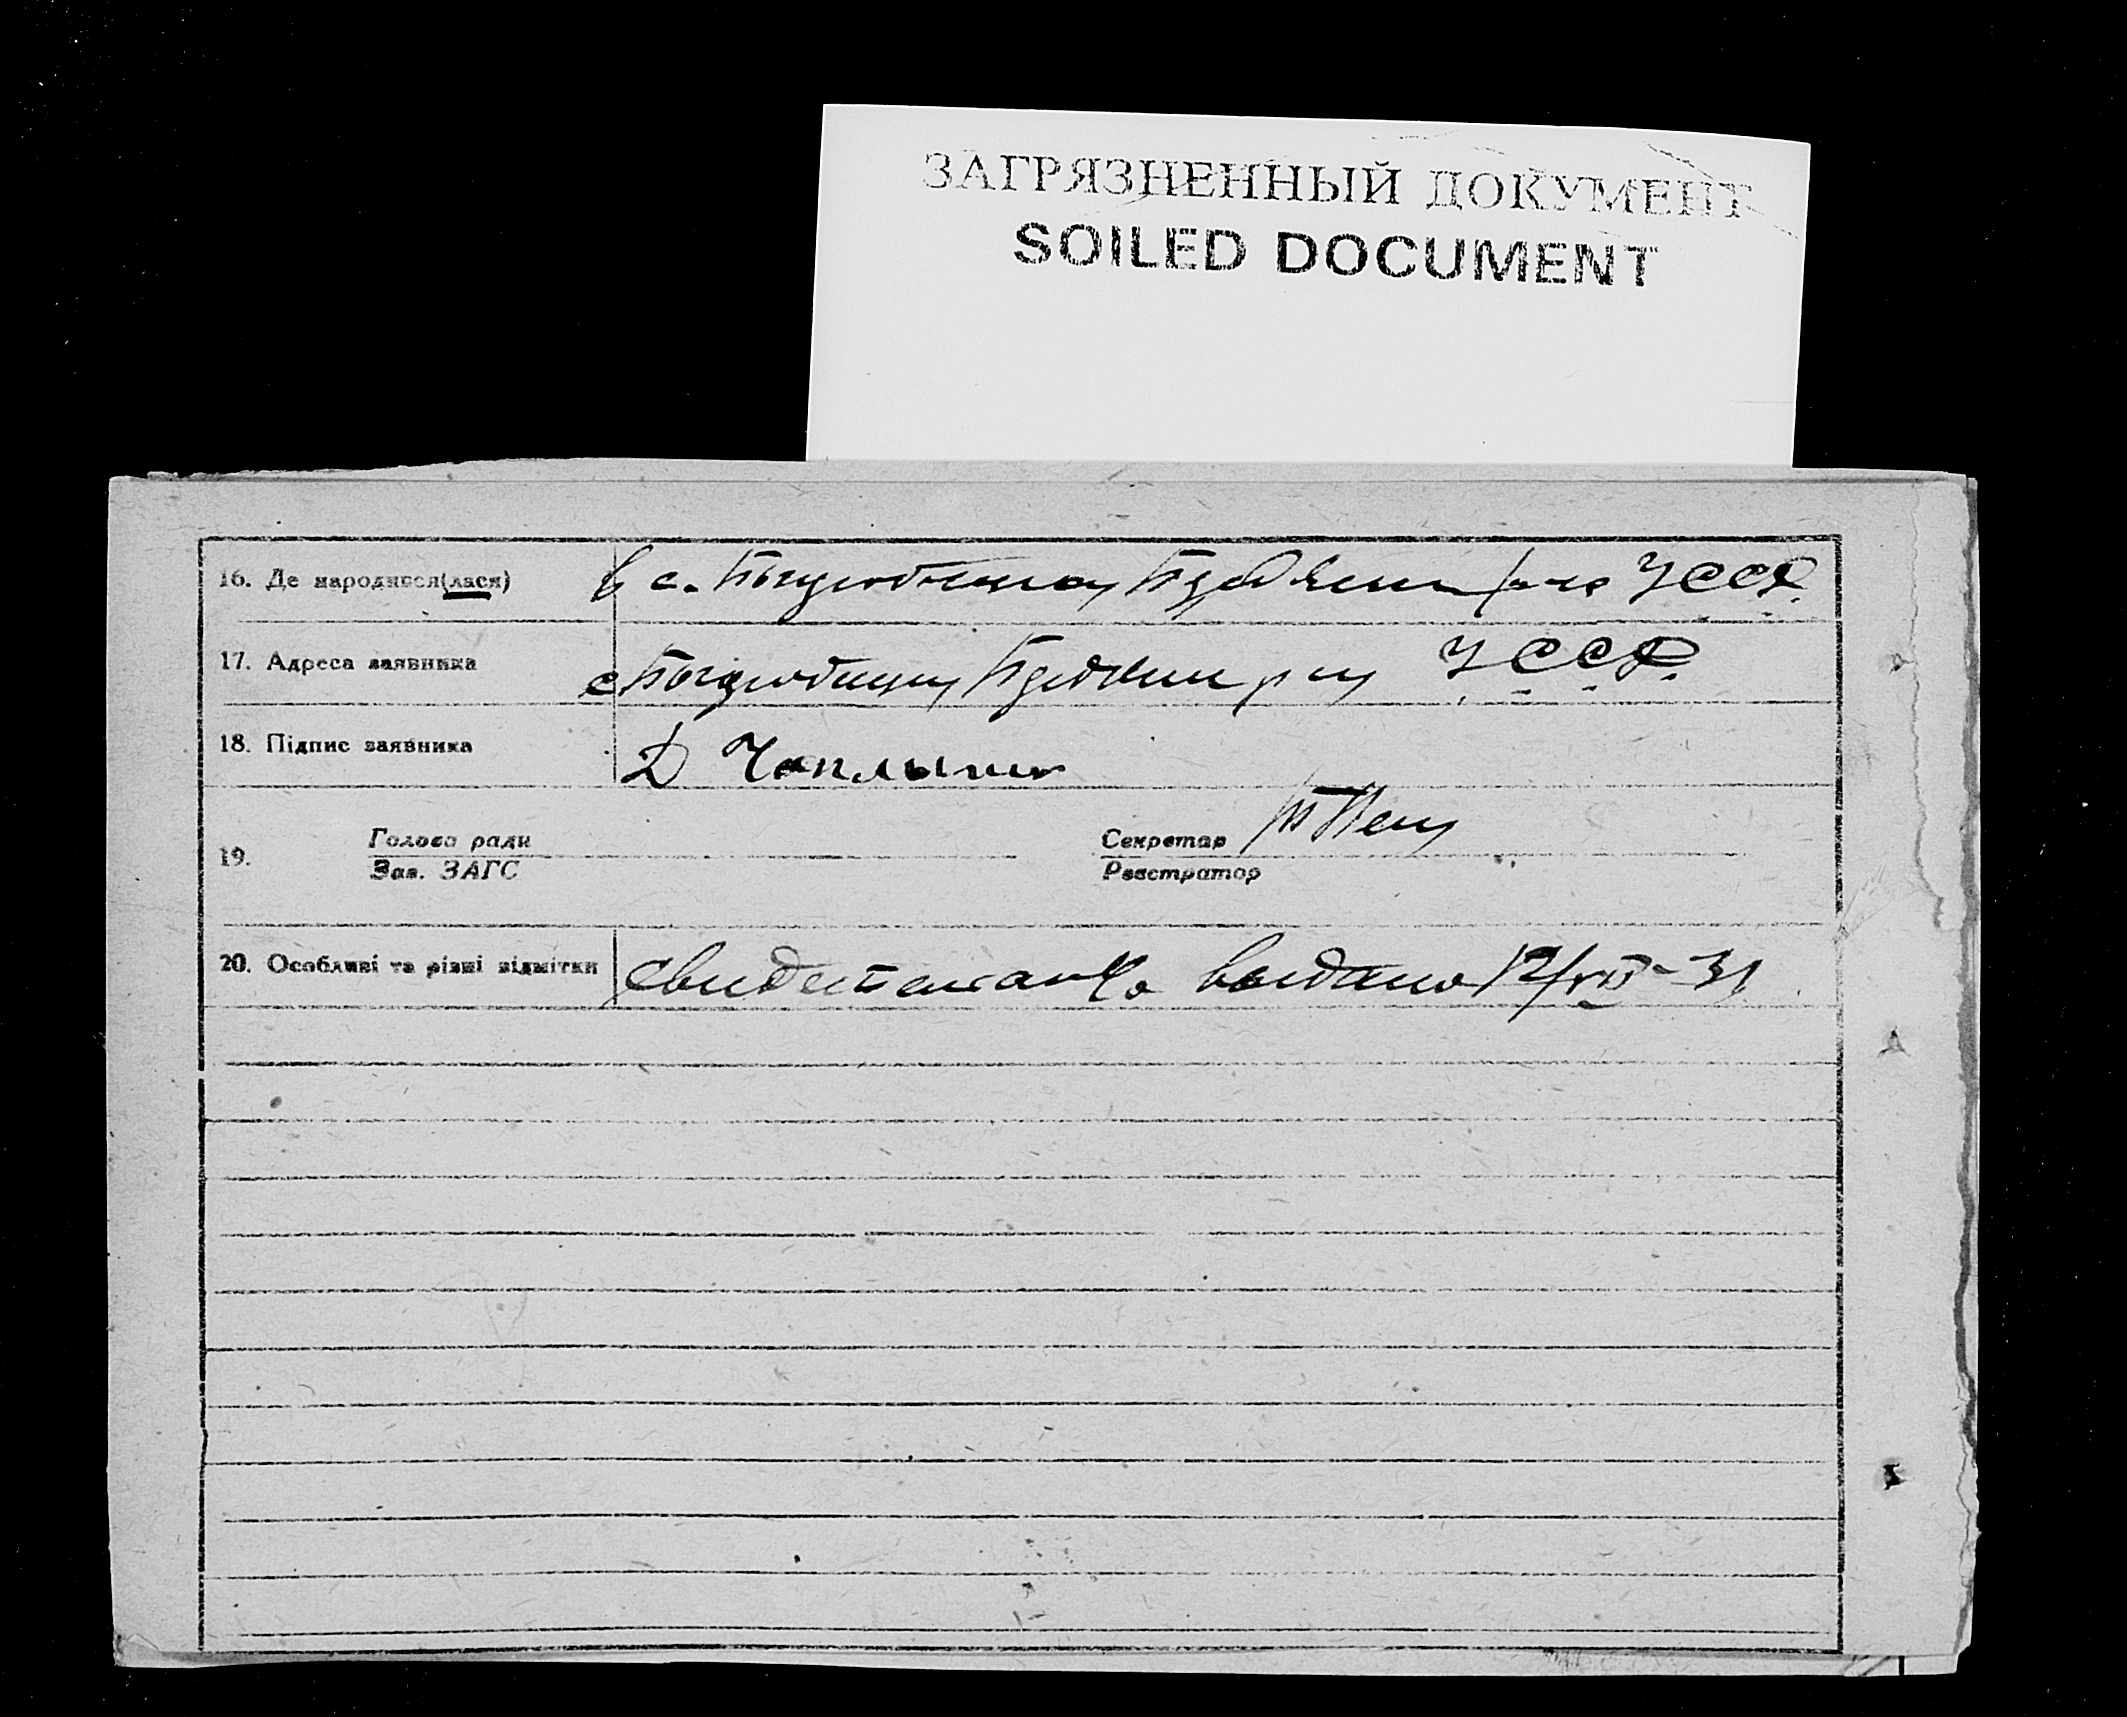 ЗАГРЯЗНЕННЫЙ ДОКУМЕНТ
SOILED DOCUMENT
16. Де народився(лася) в с. УССР.
17. Адреса заявника с. УССР.
18. Підпис заявника Д Чаплыгин
19. Голова ради Секретар
Зав. ЗАГС Реєстратор
20. Особливі та різні відмітки свидетельство выдано 12/VII-31